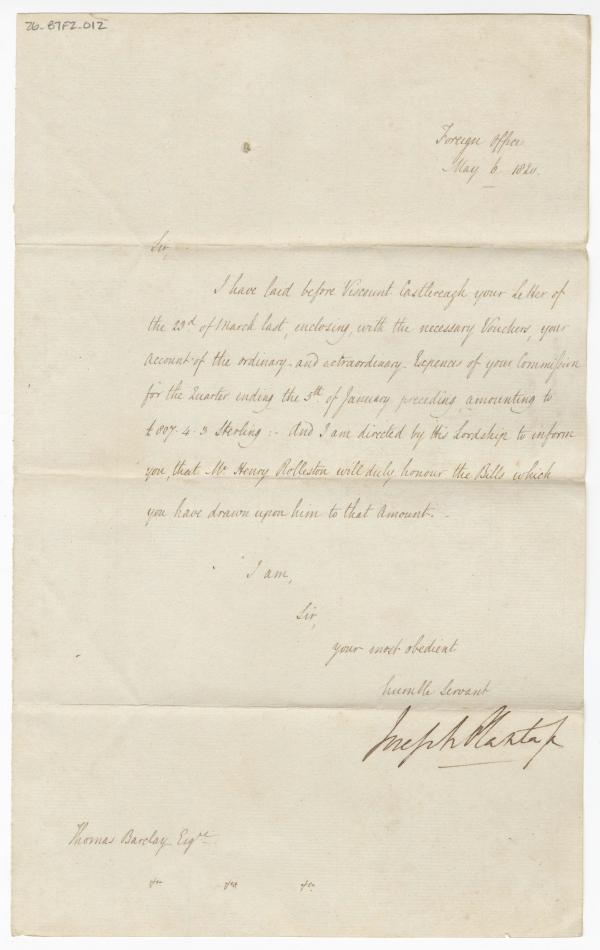 26-B7F2-012
Foreign Office
May 6 1820.
Sir,
I have laid before Viscount Castlereagh your Letter of
the 23d of March last, enclosing, with the necessary Vouchers, your
account of the ordinary and extraordinary Expences of your Commission
for the Quarter ending the 5th of January preceding, amounting to
4. 3 Sterling:- And I am directed by His Lordship to inform
you, that Mr Henry Rolleston will duly honour the Bills which
you have drawn upon him to that Amount. -
I am,
Sir,
your most obedient
humble Servant
Joseph Planta Jr
Thomas Barclay Esqre